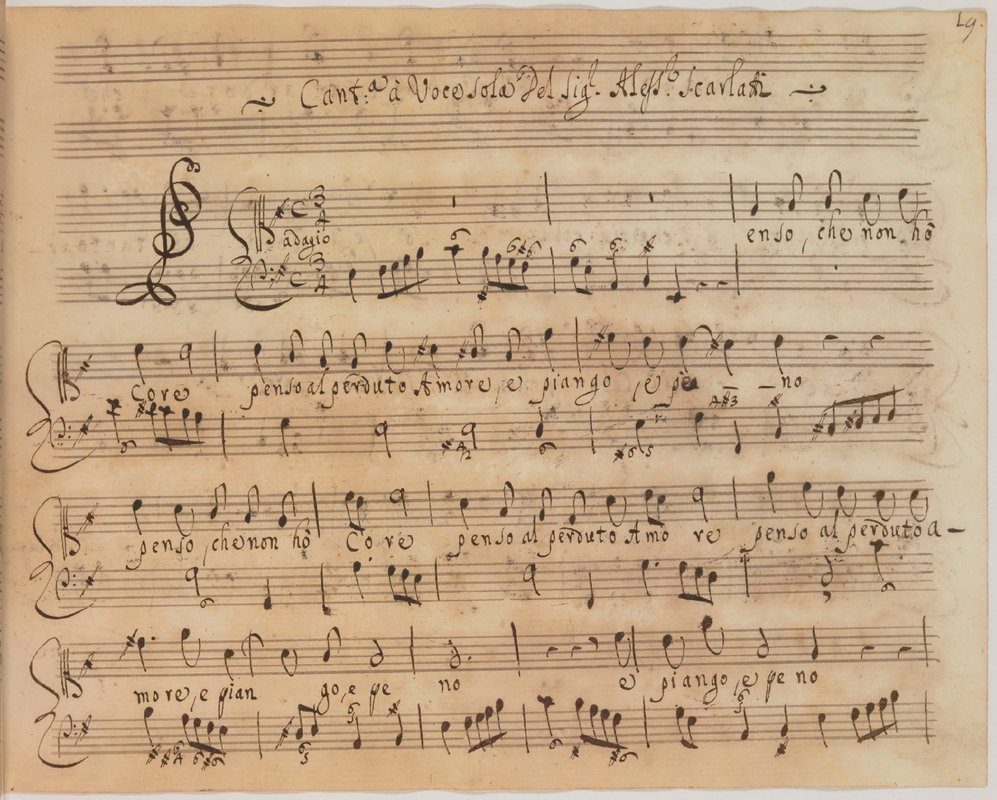 Lg.
Cant.ª à Voce sola Del Sig.r Aless.o Scarlatti
adagio
enso, che non hò
Core penso al perduto Amore, e piango, e pe no
penso, che non hò Core penso al perduto Amo re penso al perduto a-
more, e pian go, e pe no e piango, e pe no